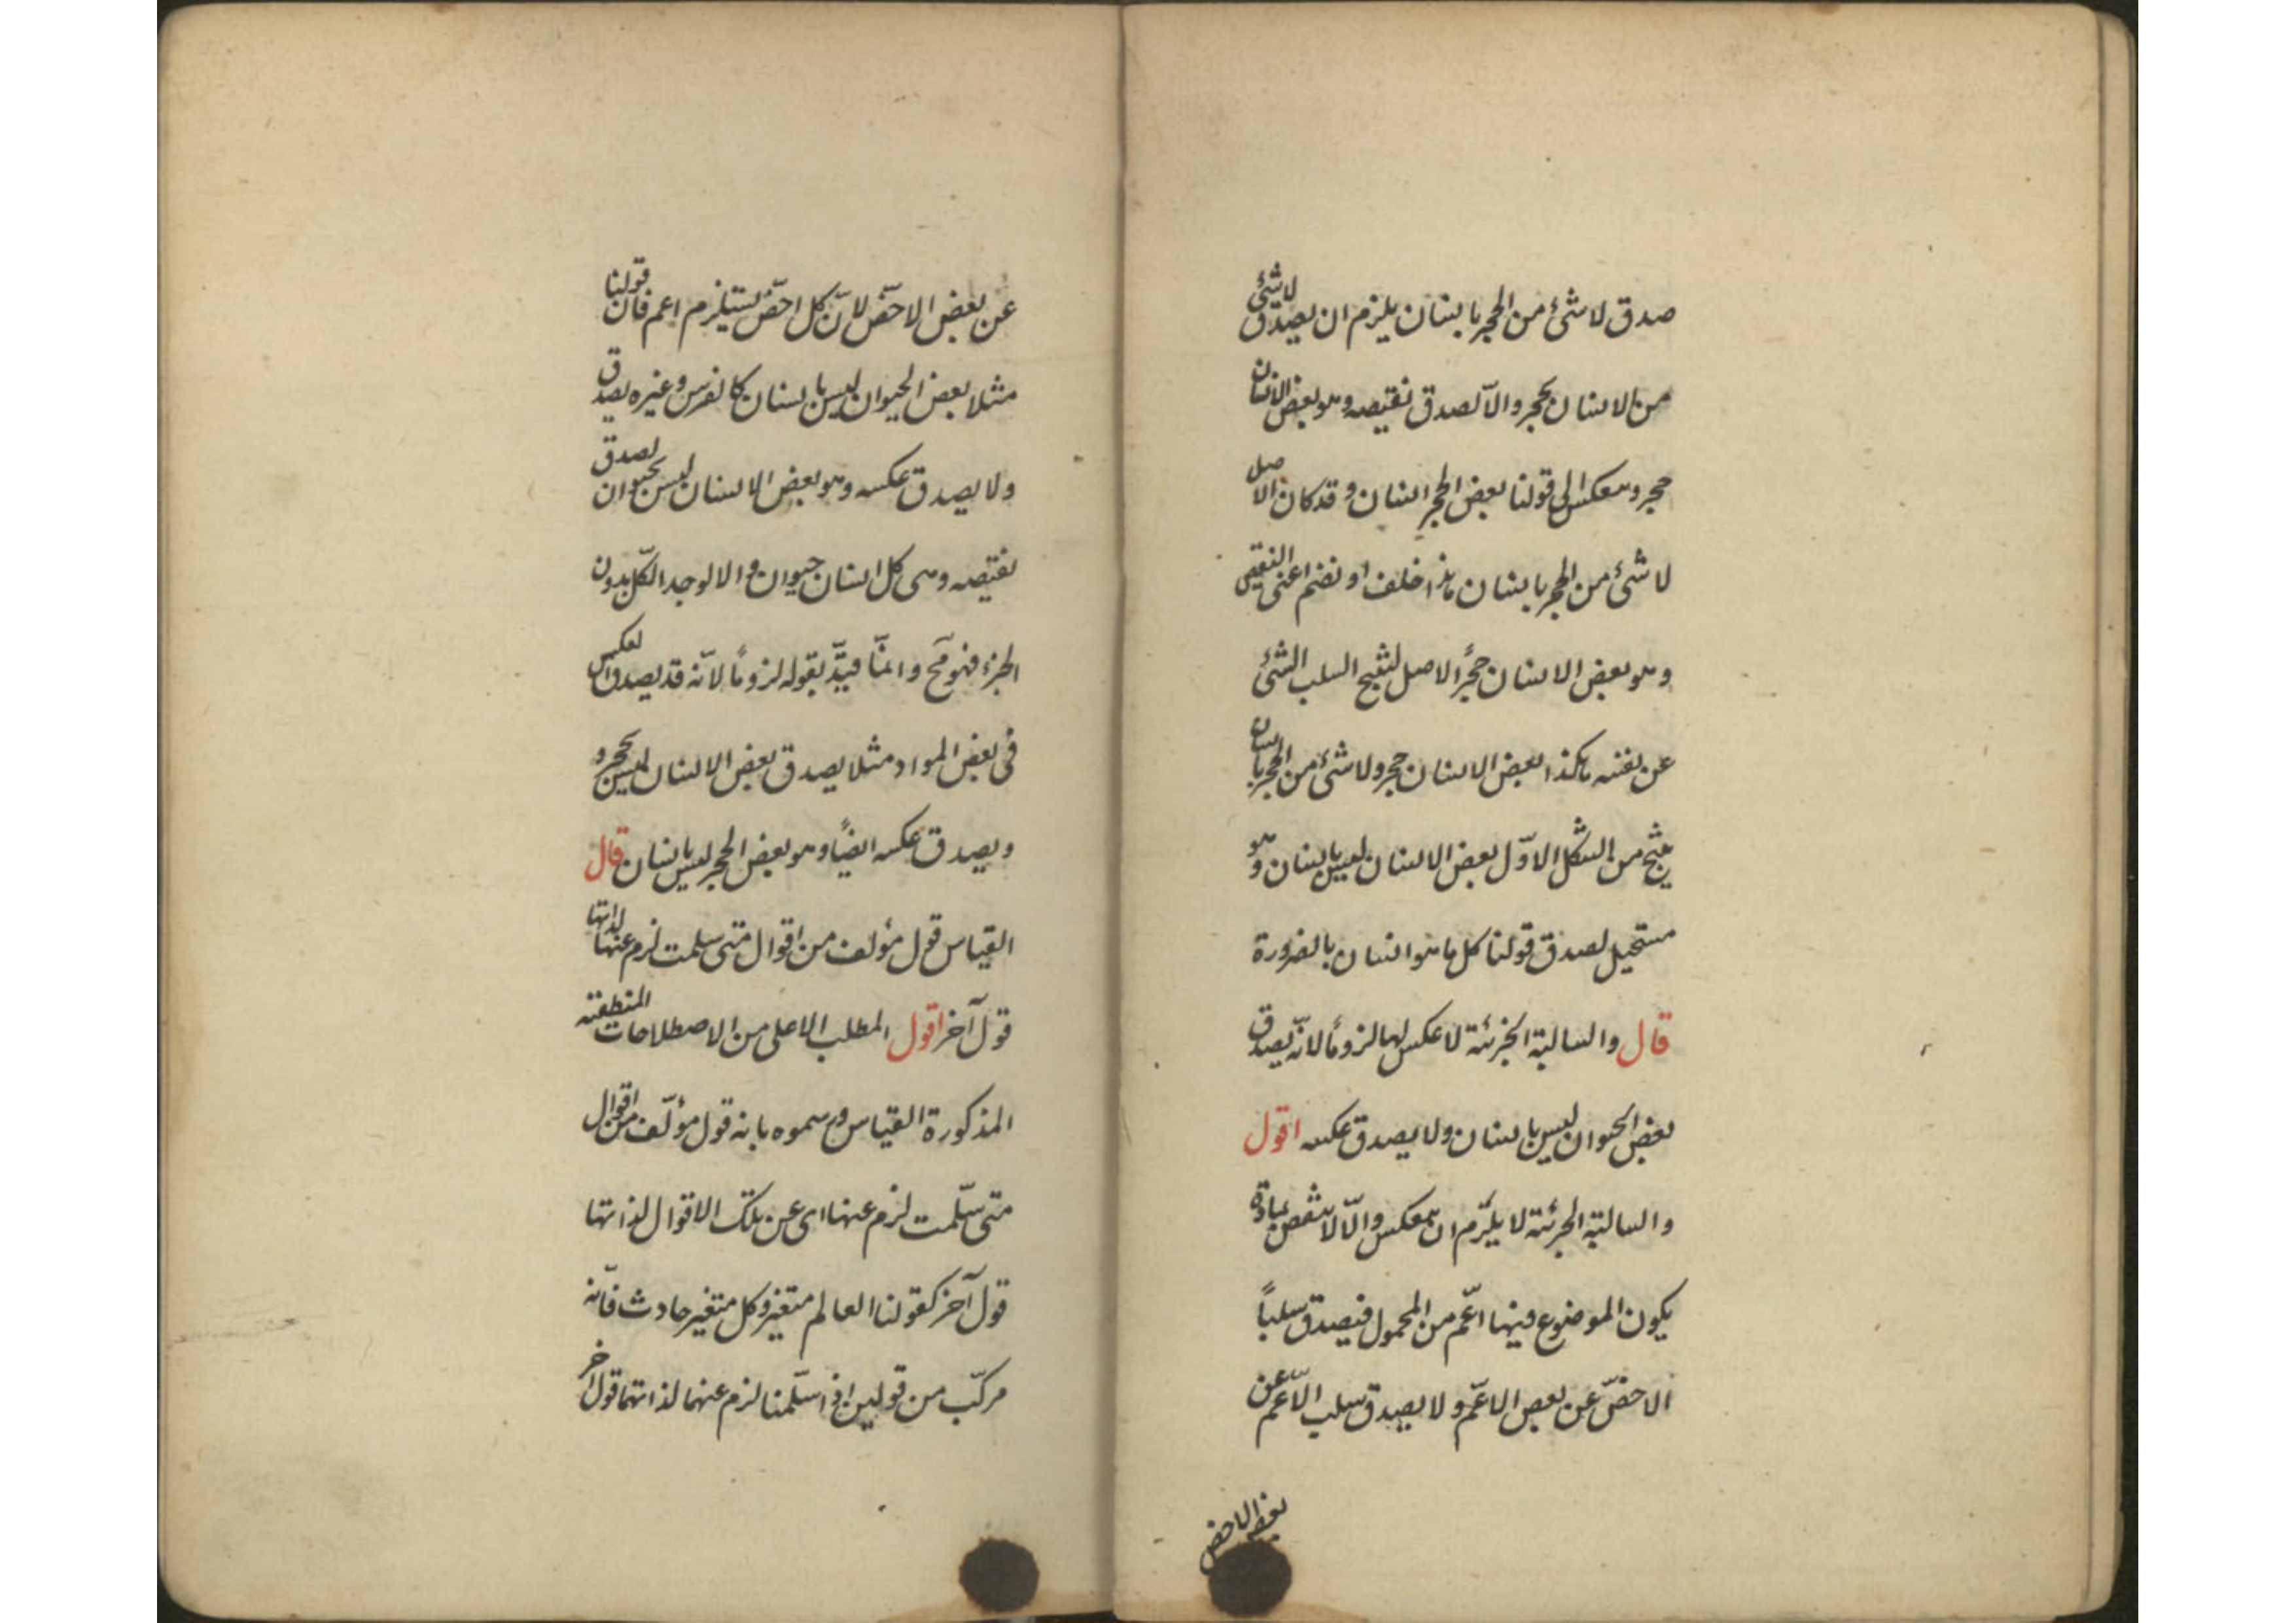 صدق لا شئ من الحجر بانسان يلزم ان يصدق لا شئ
من الانسان بحجر والّا لصدق نقيضه وهو بعض الانسان
حجر وينعكس الى قولنا بعض الحجر انسان وقد كان الاصل
لا شئ من الحجر بانسان هذا خلف او نضم اعنى النقيض
وهو بعض الانسان حجر الاصل لينتج السلب الشئ
عن نفسه هكذا بعض الانسان حجر ولا شئ من الحجر بانسان
ينتج من الشكل الاوّل بعض الانسان ليس بانسان وهو
مستحيل لصدق قولنا كل ما هو انسان بالضرورة
قال والسالبة الجزئية لا عكس لها لزومًا لانّه يصدق
بعض الحيوان ليس بانسان ولا يصدق عكسه اقول
والسالبة الجزئية لا يلزم ان ينعكس والّا لانتقض بمادة
يكون الموضوع فيها اعّم من المحمول فيصدق سلبًا
الاخصّ عن بعض الاعّم ولا يصدق سلب الاعّم عن
بعض الاخص
عن بعض الاخصّ لانّ كل اخصّ يستلزم اعم فان قولنا
مثلا بعض الحيوان ليس بانسان كالفرس وغيره يصدق
ولا يصدق عكسه وهو بعض الانسان ليس بحيوان لصدق
نقيضه وهى كل انسان حيوان والا لوجد الكلّ بدون
الجزء فهو مح وانمّا قيّد بقوله لزومًا لانّه قد يصدق العكس
فى بعض المواد مثلا يصدق بعض الانسان ليس بحجر و
ويصدق عكسه ايضًا وهو بعض الحجر ليس بانسان قال
القياس قول مؤلف من اقوال متى سلمت لزم عنها لذاتها
قول آخر اقول المطلب الاعلى من الاصطلاحات المنطقية
المذكورة القياس ورسموه بانه قول مؤلّف من اقوال
متى سلّمت لزم عنها اى عن تلك الاقوال لذاتها
قول آخر كقولنا العالم متغير وكل متغير حادث فانّه
مركّب من قولين اذا سلّمنا لزم عنهما لذاتهما قول اخر